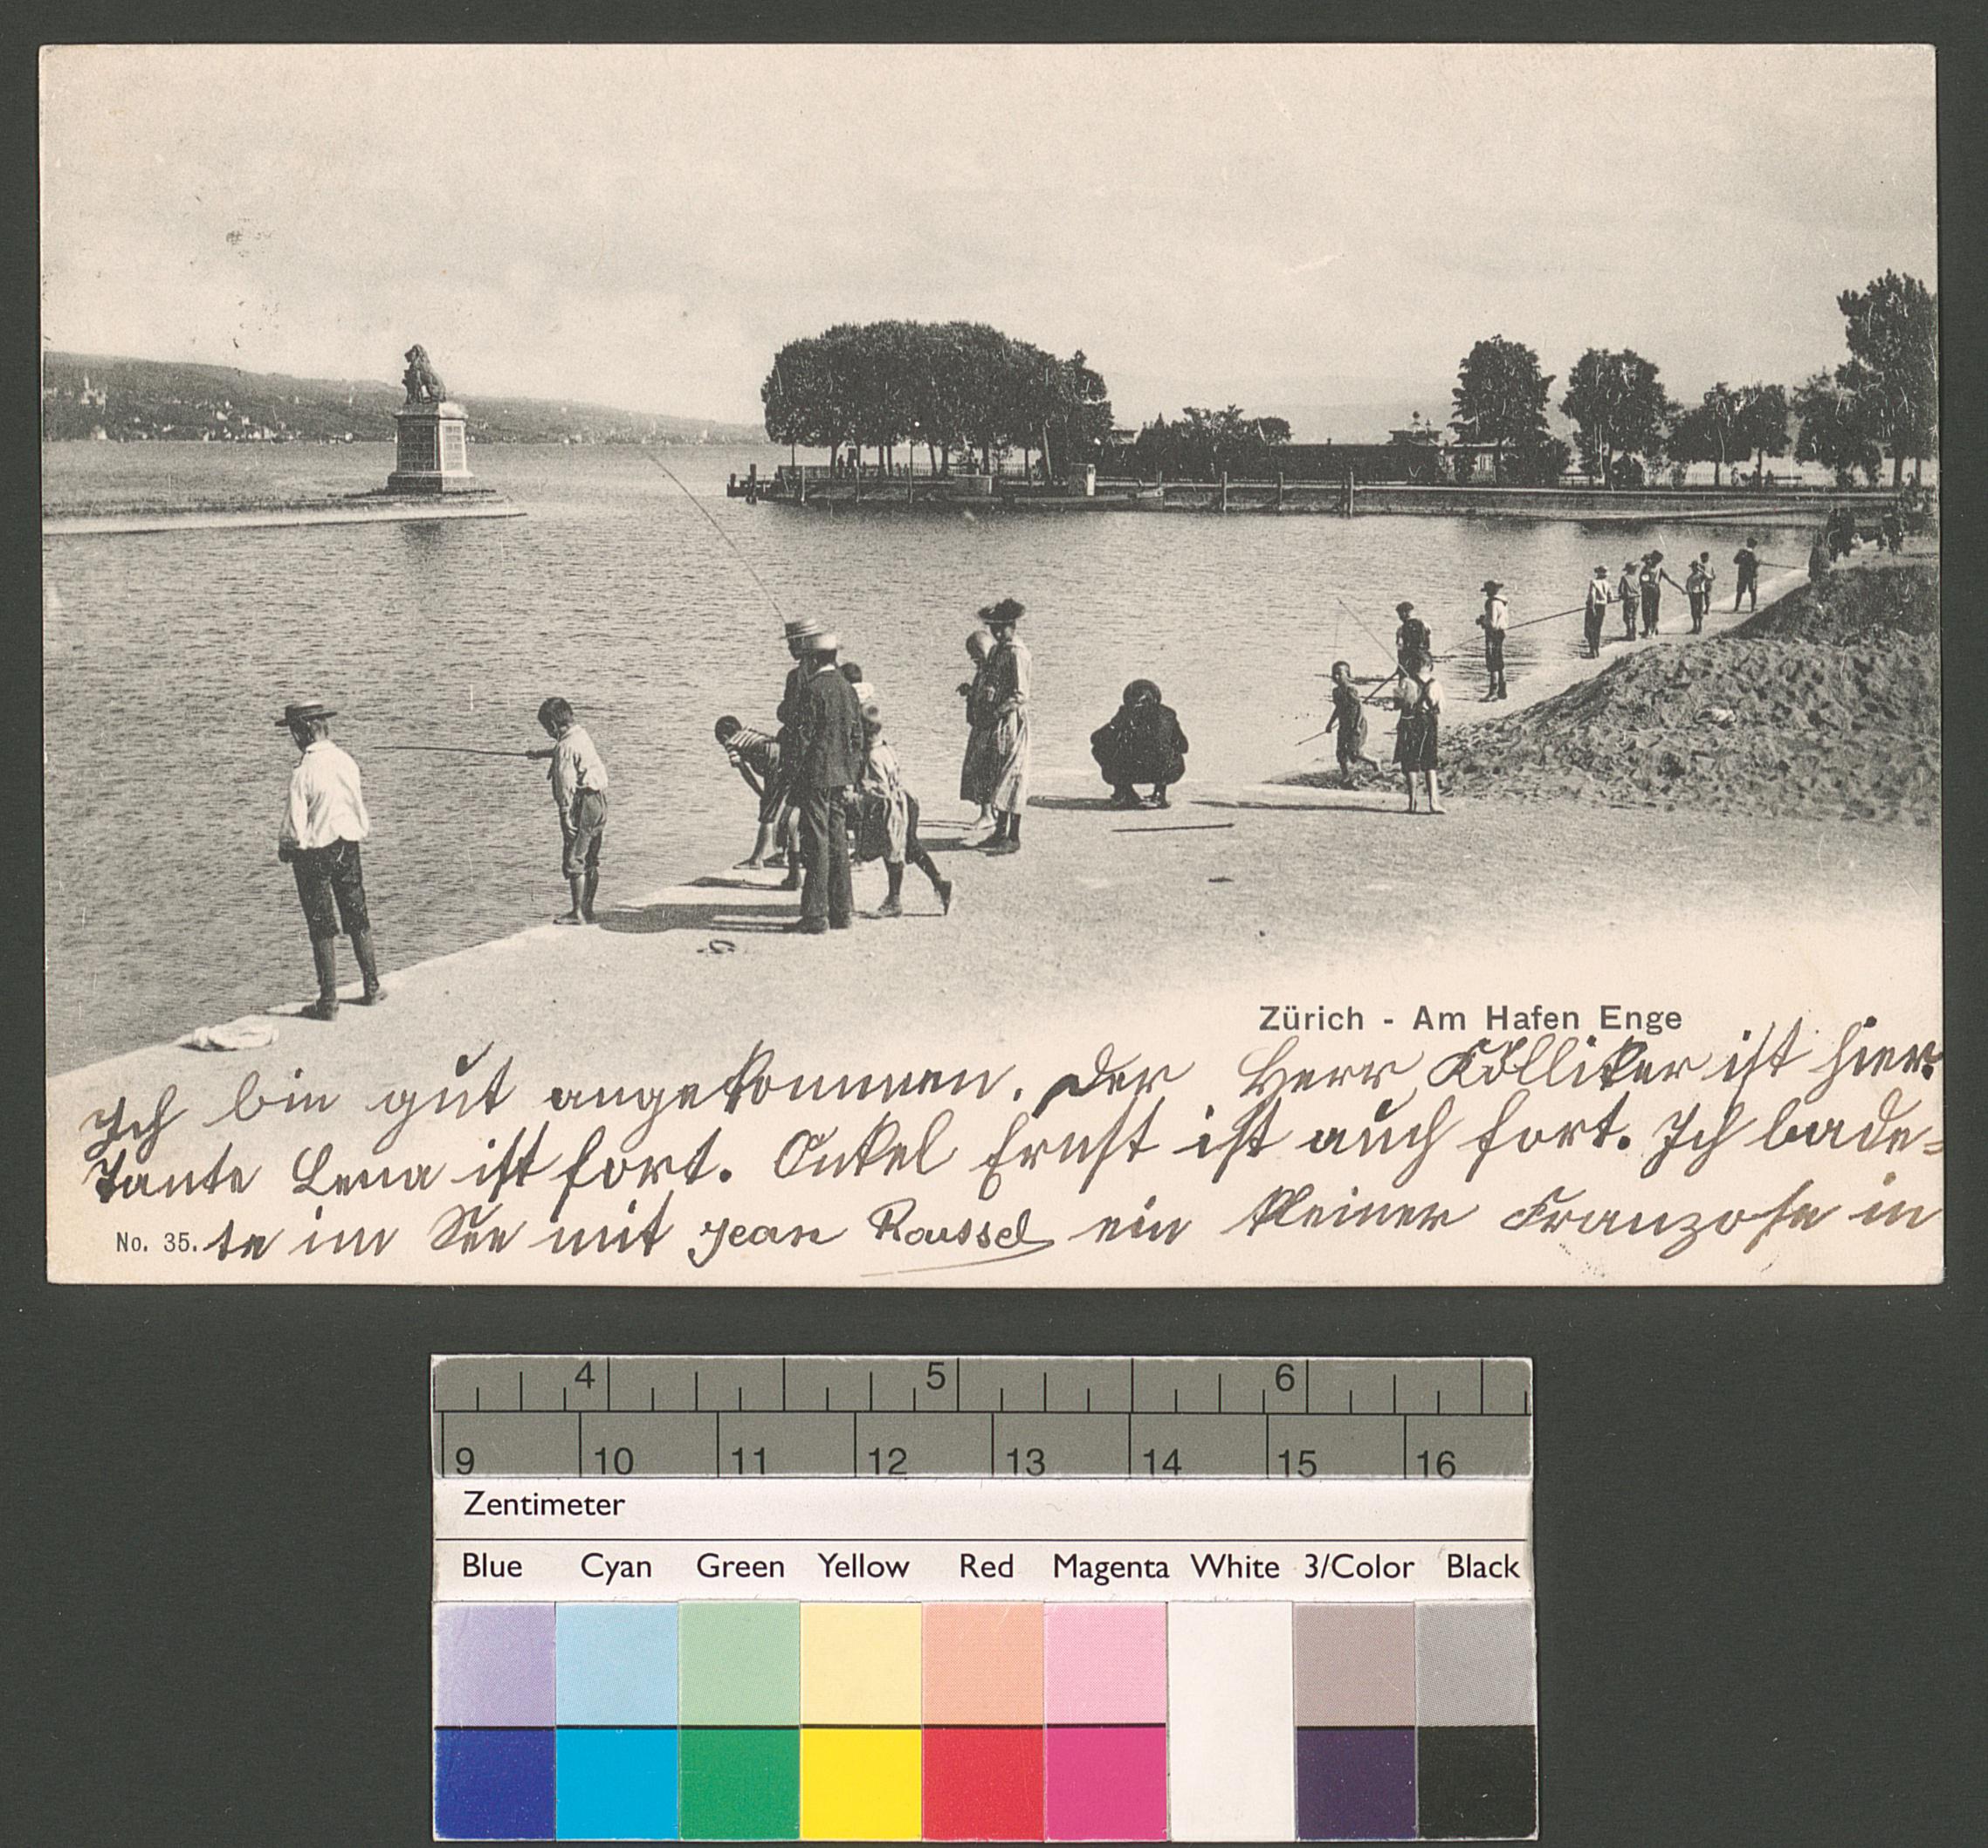 Zürich - Am Hafen Enge
Ich bin gut angekommen. Der Herr Kölliker ist hier.
Tante Lena ist fort. Onkel Ernst ist auch fort. Ich bade=
No. 35. te im See mit Jean Roussel ein kleiner Franzose in
4 5 6
9 10 11 12 13 14 15 16
Zentimeter
Blue Cyan Green Yellow Red Magenta White 3/Color Black